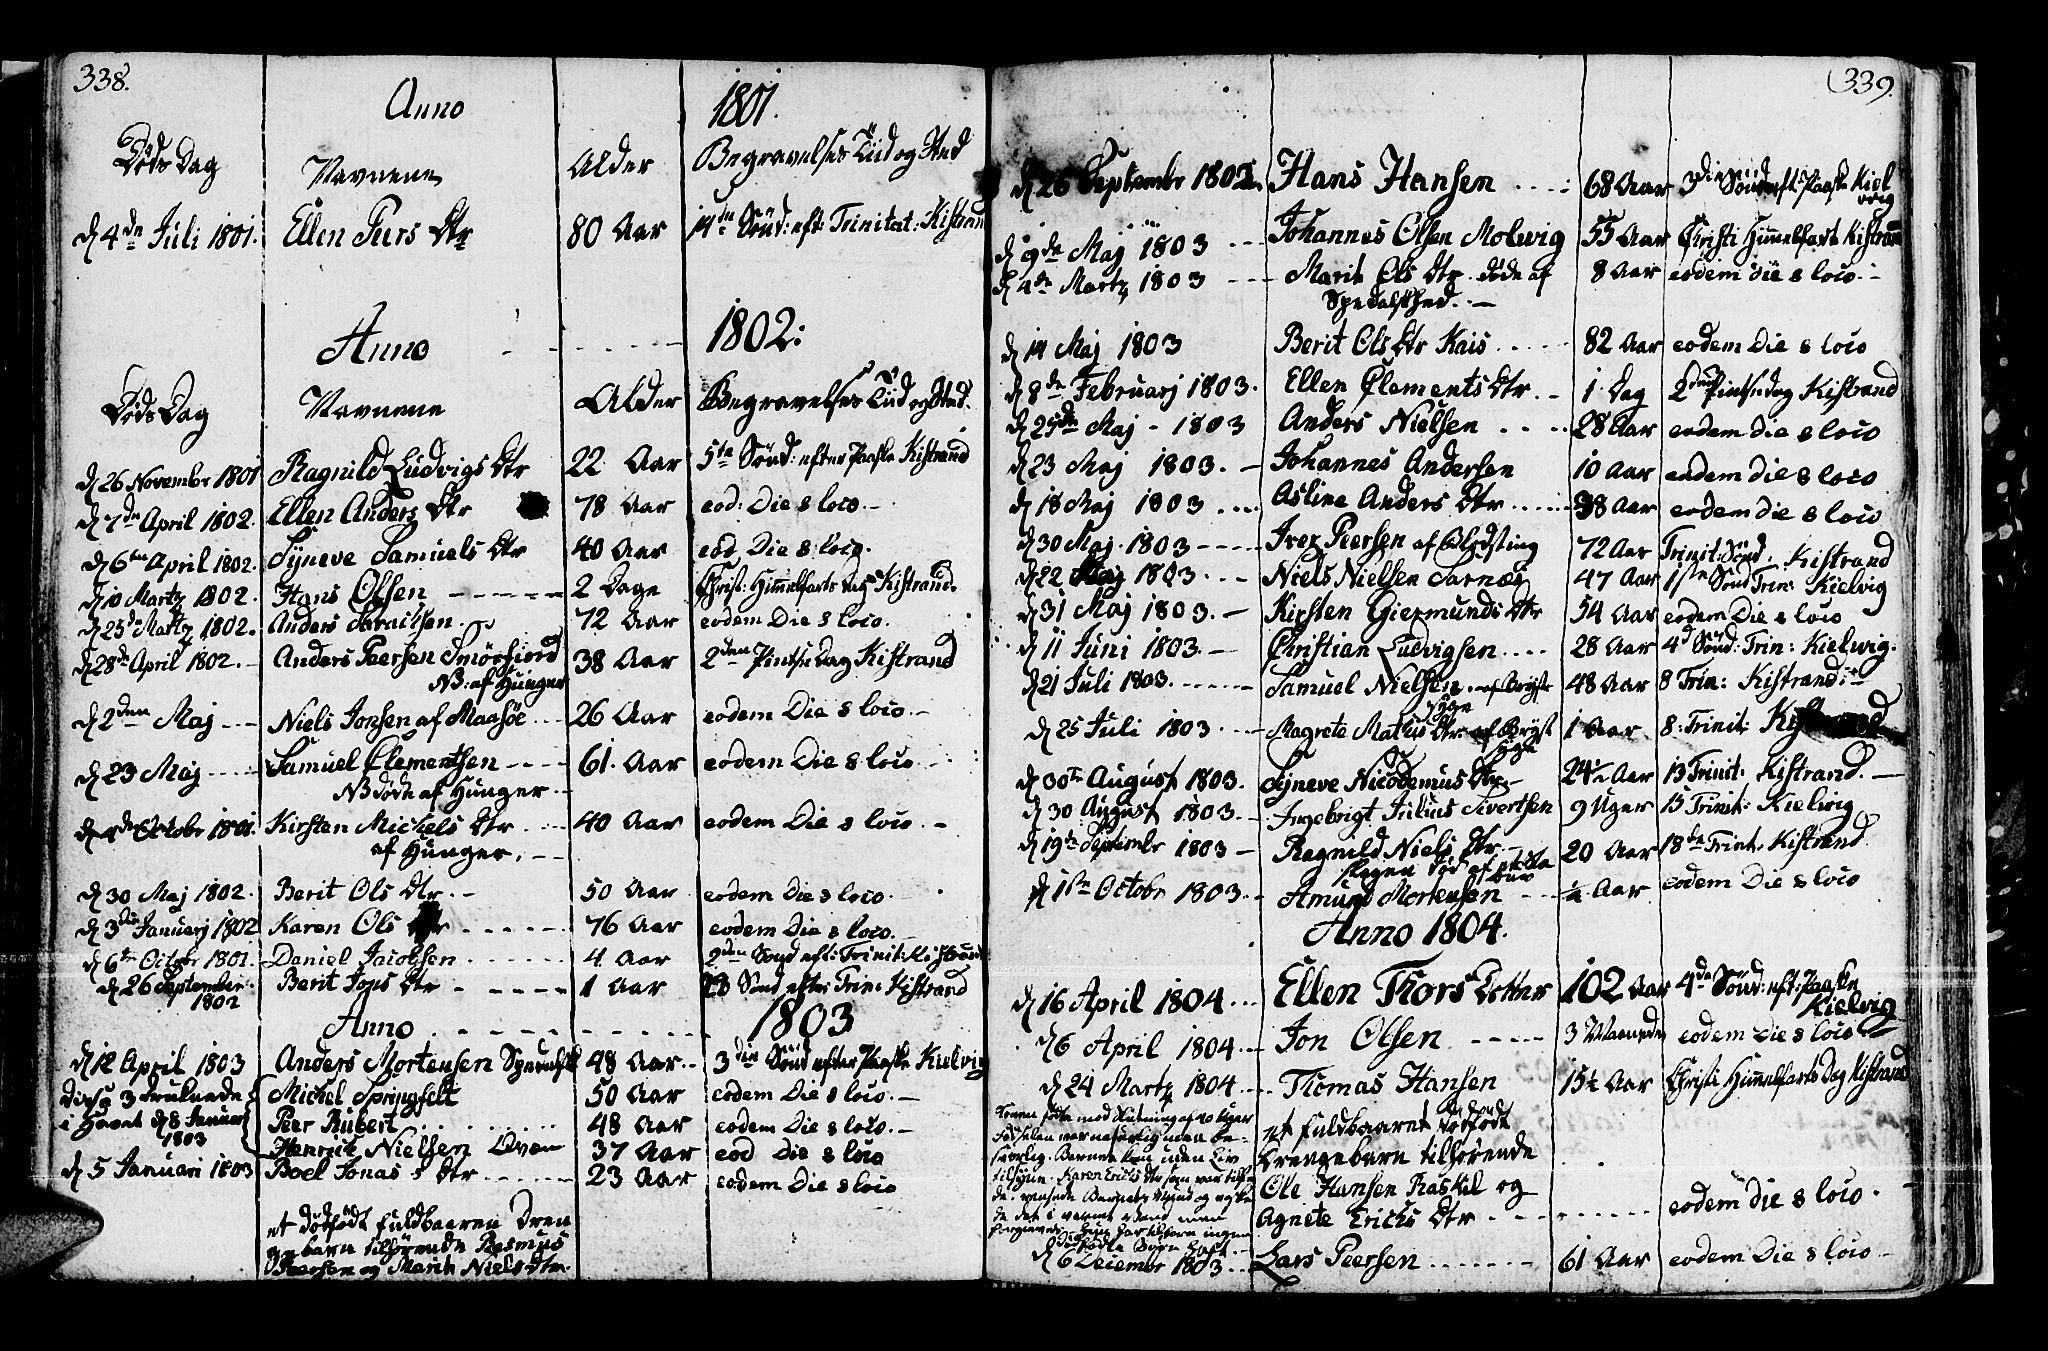 338.
Anno 1801.
Døds Dag Navnene Alder Begravelses Tiid og Sted
d 4de Juli 1801. Ellen Peers Dtr 80 Aar 14de Sönd: eft: Trinitat: Kistrand
Anno 1802:
Døds Dag Navnene Alder Begravelses Tiid og Sted.
d 26 November 1801 Ragnild Ludvigs Dtr 22 Aar 5te Sönd: efter Paaske Kistrand
d 7de April 1802. Ellen Anders Dtr 78 Aar eod: Die & loco.
d 6te April 1802. Syneve Samuels Dtr 40 Aar eod. Die & loco.
d 10 Martz 1802. Hans Olsen 2 Dage Christ: Himmelfarts Dag Kistrand.
d 25de Martz 1802. Anders 72 Aar eodem Die & loco.
d 28de April 1802. Anders Peersen Smörfiord 38 Aar 2den Pintse Dag Kistrand
NB: af Hunger
d 2den Maj Niels Jonsen af Maasöe 26 Aar eodem Die & loco.
d 23 Maj Samuel Clementsen 61. Aar eodem Die & loco
NB døde af Hunger.
d 4de Octobr 1801. Kirsten Michels Dtr 40 Aar eodem Die & loco.
af Hunger.
d 30 Maj 1802. Berit Ols Dtr. 50 Aar eodem Die & loco.
d 3die Januarj 1802 Karen Ols Dtr 76 Aar eodem Die & loco.
d 6te Octobr 1801. Daniel Jacobsen 4 Aar 2den Sönd eft: Trinit: Kistrand
d 26 September Berit Jons Dtr 1 Aar Sönd efter Trin: Kistrand
1802
Anno 1803
d 12 April 1803 Anders Mortensen Spedalsk 48 Aar 3die Sönd efter Paaske Kielvig
Disse 3 druknede Michel Springfelt 50 Aar eodem Die & loco.
i Havet d 8 Januar Peer Rubert 48 Aar eodem Die & loco.
1803 Henrich Nielsen Qvæn 37 Aar eod Die & loco
d 5 Januari 1803 Boel Jonas Dtr 23 Aar eodem Die & loco
et dødfødt fuldbaaren Dren
ge barn tilhörende Rasmus
Peersen og Marit Niels Dtr.
339.
d 26 September 1802. Hans Hansen 68 Aar 3die Sönd eft: Paaske Kiel
vig
d 9de Maj 1803 Johannes Olsen Molvig 55 Aar Christi Himmelfart Kistrand
d 4de Martz 1803 Marit Ols Dtr. døde af 8 Aar eodem die & loco.
Spedalskhed.
d 14 Maj 1803 Berit Ols Dtr Kais 82 Aar eodem Die & loco
d 8de Februarj 1803. Ellen Clements Dtr. 1 Dag 2den Pintsedag Kistrand
d 25de Maj - 1803 Anders Nielsen 28 Aar eodem Die & loco
d 23 Maj 1803. Johannes Andersen 10 Aar eodem die & loco
d 18 Maj 1803 Asline Anders Dtr 38 Aar eodem die & loco
d 30 Maj. 1803 Iver Peersen af 72 Aar Trinit: Sönd. Kistrand
d 22 Maj 1803. Niels Nielsen Sarnæs 47 Aar 1ste Sönd Trin: Kielvig
d 31 Maj 1803. Kirsten Giermunds Dtr 54 Aar eodem Die & loco
d 11 Juni 1803. Christian Ludvigsen 28 Aar 4d Sönd: Trin: Kielvig.
d 21 Juli 1803. Samuel Nielsen. af Bryst 48 Aar 8 Trin: Kistrand:
syge
d 25 Juli 1803. Magrete Mathis Dtr af Bryst 1 Aar 8: Trinit: Kistrand
syge
d 30te August 1803. Syneve Nicodemus Dtr 24½ Aar 13 Trinit: Kistrand.
d 30 August 1803. Ingebrigt Julius Sivertsen 9 Uger 15 Trinit: Kielvig
d 19de September 1803 Ragnild Niels Dtr 20 Aar 18de Trint. Kistrand.
d 1ste Octobr 1803. Amund Mortensen ½ Aar eodem Die & loco
Anno 1804.
d 16 April 1804. Ellen Thors Dotter 102 Aar 4de Sönd: eft: Paaske
Kielvig
d 6 April 1804. Jon Olsen 3 Maaneder eodem Die & loco
d 24 Martz 1804. Thomas Hansen 15½ Aar Christi Himmelfarts Dag Kistrand
et fuldbaaret dödfödt
Drengebarn tilhörende
Ole Hansen og
Agnete Erichs Dtr eodem Die & loco.
Konen fødte med Slutning af 40 Uger
uden Liv
Karen Erichs Dtr som var tilste
de.
d 6 Decembr 1803. Lars Peersen 61 Aar eodem Die & loco